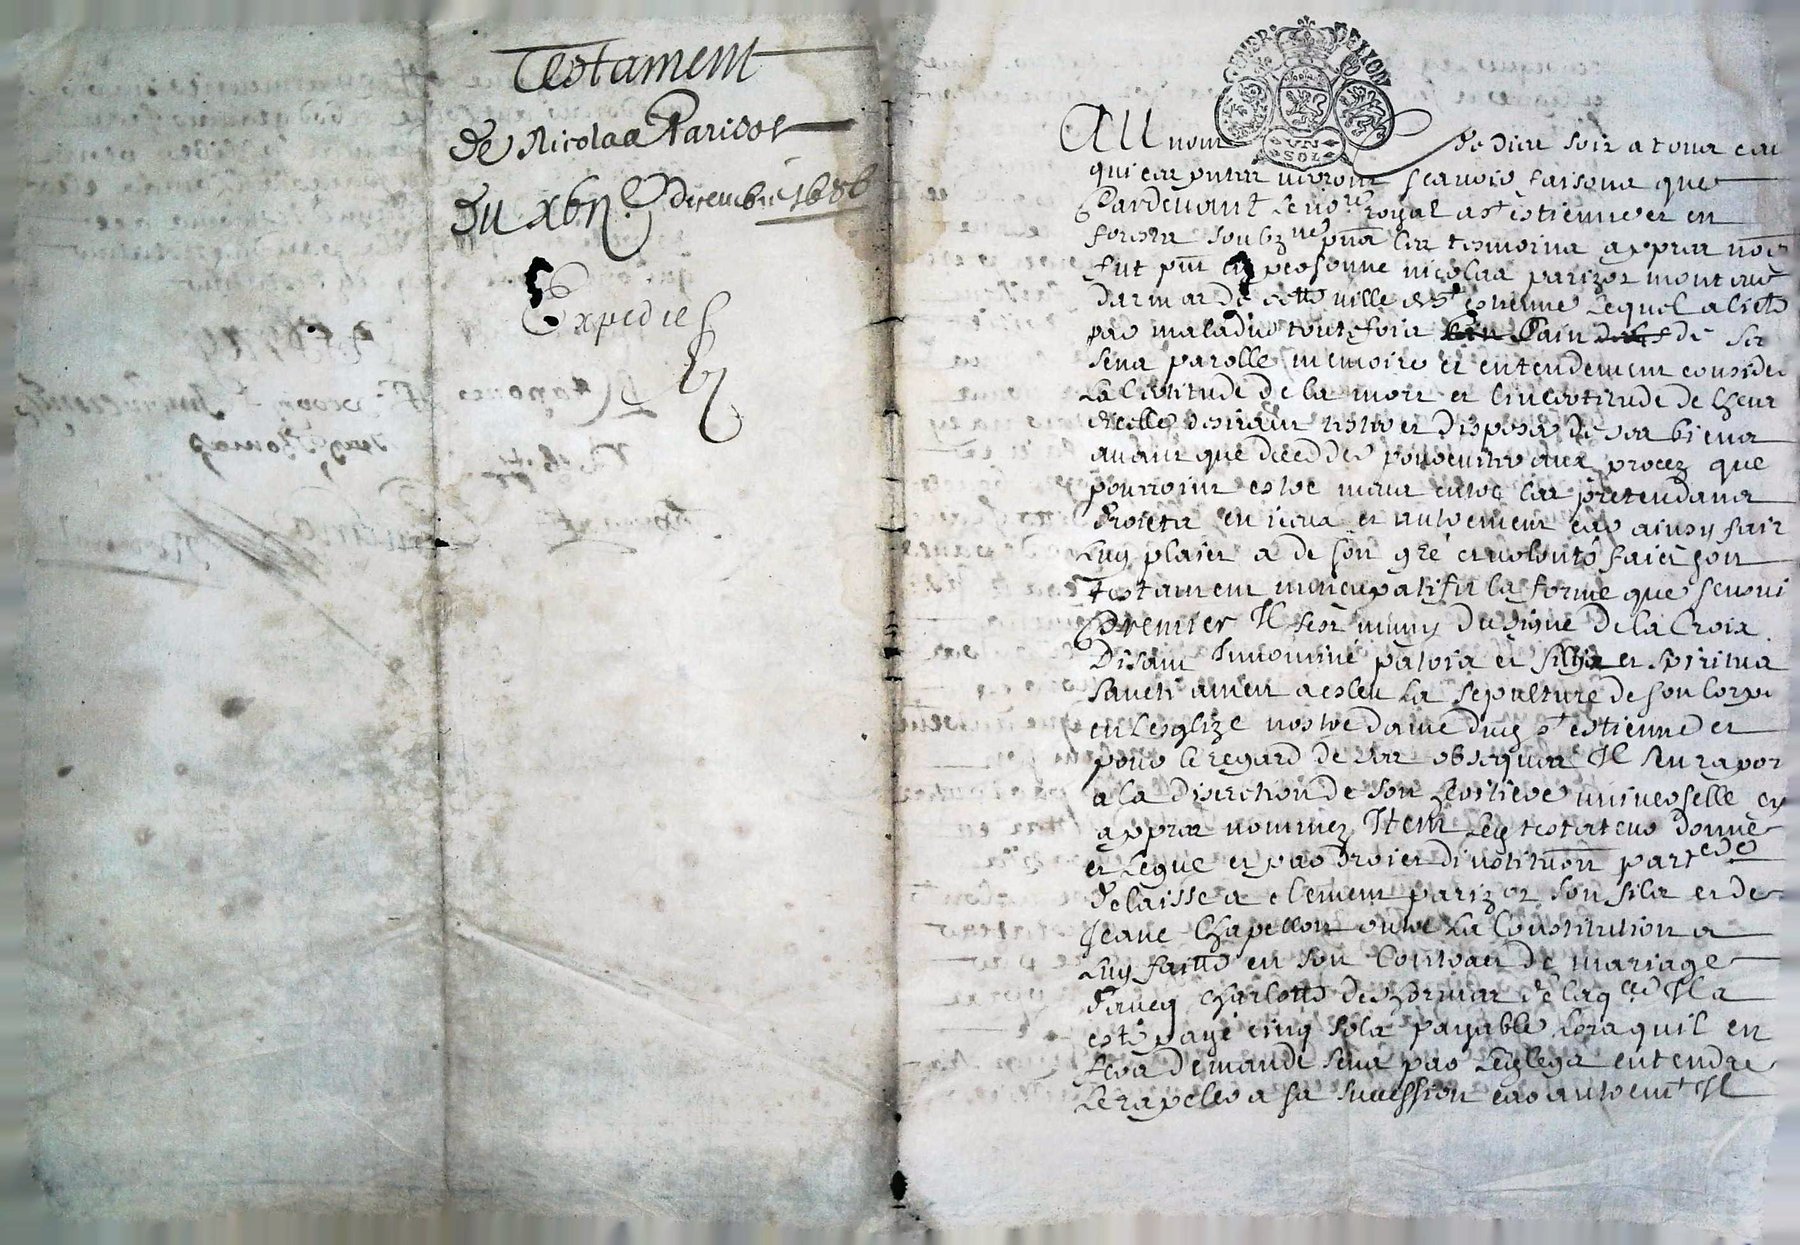 Testament
de Nicolas Parizot
du xbıȷe decembre 1686
Expedie
GENER DE LYON
VN
SOL
AU nom de dieu soit a tous ceux
qui ces pntes verront scavoir faisons que
Pardevant le nore royal a st estienne et en
forestz soubzne pnts les tesmoins appres noes
fut pnt en personne nicolas parizot monteur
darmes de cette ville de st estienne lequel alicté
par maladie toutefois sain de ses
sens parolle memoire et entendement consider
La Certitude de la mort et lincertitude de lheur
dicelle desirant disposer de ses biens
avant que deceder pour eviter aux procez que
pourroint estre meus entre les pretendans
droictz en iceux et autrement car ainsy fait
Luy plaict a de son gré et volonté faict son
Testament nuncupatif en la forme que sensui
Premier Il sest muny du signe de la Croix
Disant In nomine patris et filii et spiritus
sancti amen a esleu La sepulture de son Corps
en Lesglize nostre dame dud st estienne et
pour le regard de ses obseques Il sen rapor
a la discretion de son heritiere universelle cy
appres nommez Item Led testateur donne
et Legue et par droict dinstitution partere
delaisse a clement parizot son filz et de
Jeane Chapellon outre La Constitution a
Luy faitte en son Contract de mariage
davecq Charlotte de laqlle Il a
esté payé cinq solz payable Lors quil en
fera demande sens par Led legz entendre
Le rapeler a sa succession car autremt Il